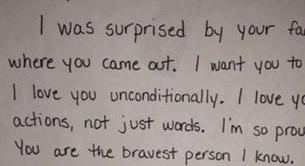 I was surprised by your
where you came out. I want you to
I love you unconditionally. I love
actions, not just words. I'm so
You are the bravest person I know.